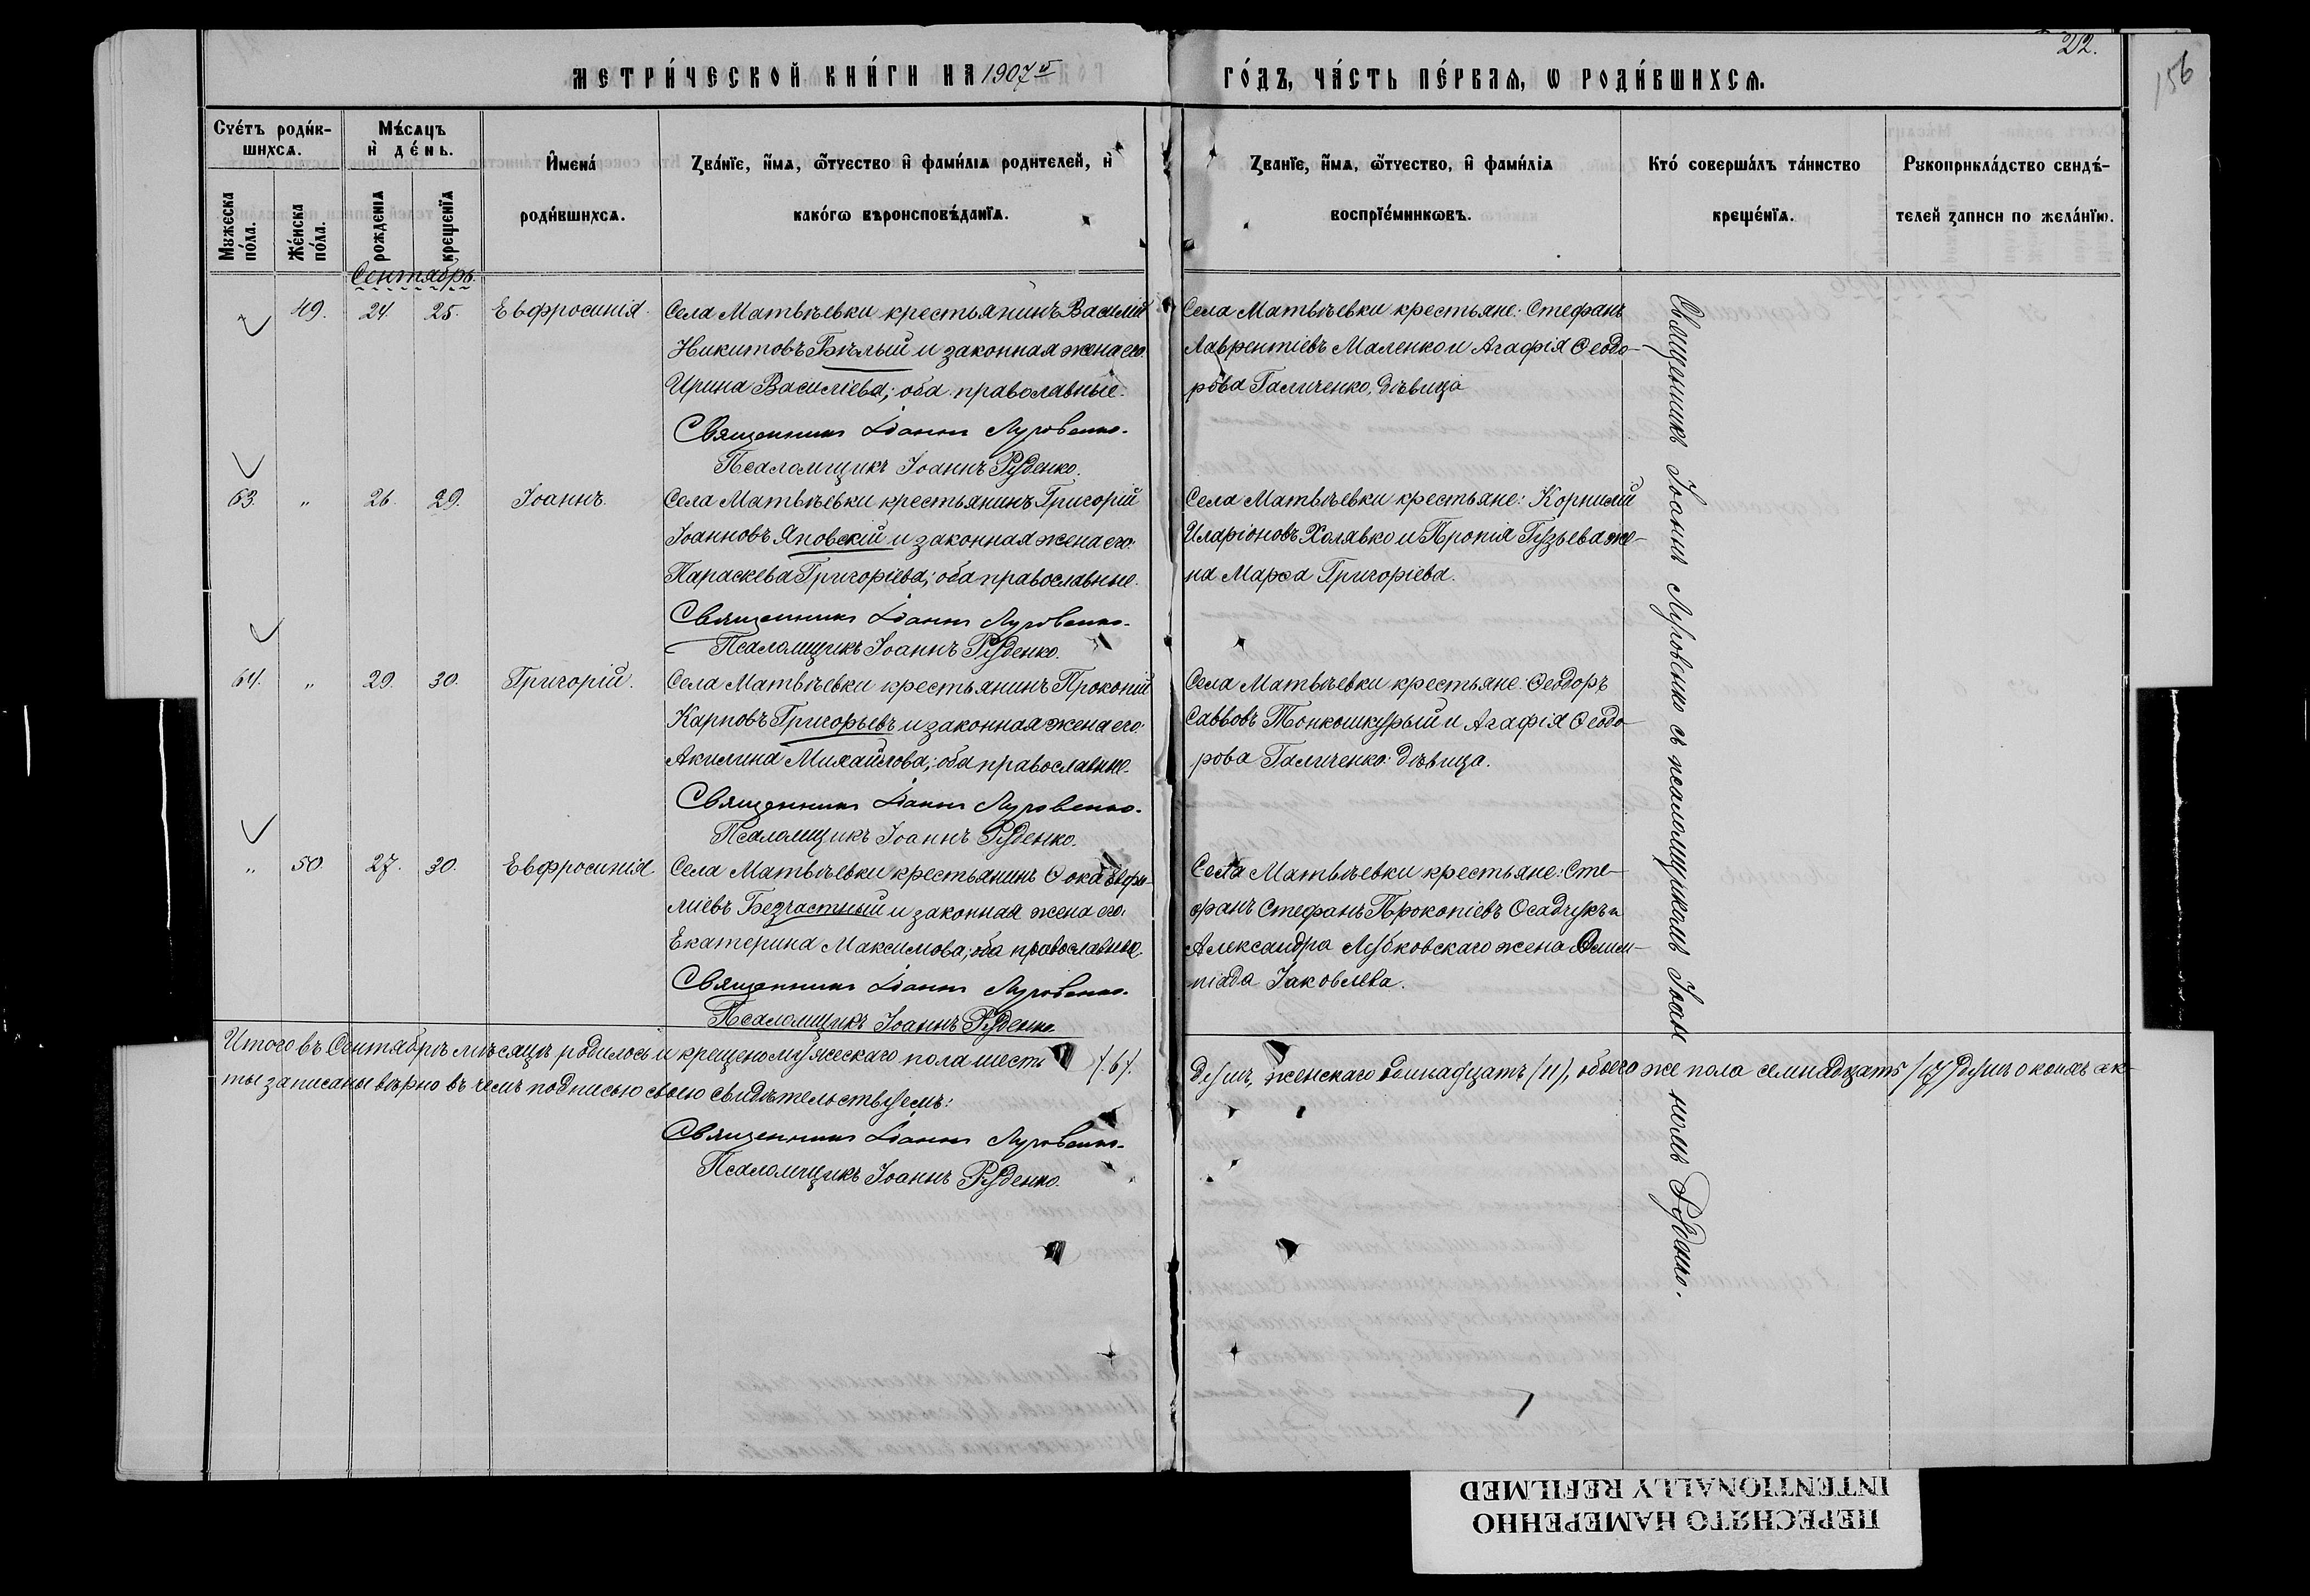 212.
156
МЕТРИ́ЧЕСКОЙ КНИ́ГИ НА 1907й ГО́ДЪ, ЧА́СТЬ ПЕ́РВАѦ, Ѡ РОДИ́ВШИХСѦ.
Счетъ роди́в-
шихсѧ.
Мꙋжеска по́ла.
Же́нска по́ла.
Мѣ́сѧцъ
и҆ де́нь.
рожденїѧ
крещенїѧ
И҆мена́
роди́вшихсѧ.
Зва́нїе, и҆́мѧ, ѻ҆́тчество и҆ фами́лїѧ родителей, и҆
како́гѡ вѣроисповѣ́данїѧ.
Зва́нїе, и҆́мѧ, ѻ҆́тчество, и҆ фами́лїѧ
воспрїе́мникѡвъ.
Кто́ соверша́лъ та́инство
креще́нїѧ.
Рꙋкоприкла́дство свидѣ́-
телей записи по жела́нїю.
Сентябрь.
49. 24. 25. Евфросинія. Села Матвѣевки крестьянинъ Василій
Никитовъ Бѣлый и законная жена его
Ирина Василіева; оба православные.
Священникъ Іоаннъ Луговенко.
Псаломщикъ Іоаннъ Руденко.
Села Матвѣевки крестьяне: Стефанъ
Лаврентіевъ Маленко и Агафія Ѳеодо-
рова Галиченко, дѣвица
63. " 26. 29. Іоаннъ. Села Матвѣевки крестьянинъ Григорій
Іоанновъ Яповскій и законная жена его
Параскева Григоріева; оба православные.
Священникъ Іоаннъ Луговенко.
Псаломщикъ Іоаннъ Руденко.
Села Матвѣевки крестьяне: Корнилій
Иларіоновъ Холявко и Прокія Гузьева же-
на Марѳа Григоріева.
64. " 29. 30. Григорій. Села Матвѣевки крестьянинъ Прокопій
Карповъ Григорьевъ и законная жена его
Акилина Михайлова; оба православные.
Священникъ Іоаннъ Луговенко.
Псаломщикъ Іоаннъ Руденко.
Села Матвѣевки крестьяне: Ѳеодоръ
Саввовъ Тонкошкурый и Агафія Ѳеодо-
рова Галиченко: дѣвица.
" 50. 27. 30. Евфросинія Села Матвѣевки крестьянинъ Ѳока
ліевъ Безчастный и законная жена его
Екатерина Максимова; оба православные.
Священникъ Іоаннъ Луговенко.
Псаломщикъ Іоаннъ Руденко.
Села Матвѣевки крестьяне: Сте-
фанъ Стефанъ Прокопіевъ Осадчукъ и
Александра Лубковскаго жена Олим-
піада Іаковлева.
Священникъ Іоаннъ Луговенко съ псаломщикомъ Іоанномъ Руденко.
Итого въ Сентябрѣ мѣсяцѣ родилось и крещено мужескаго пола шесть /.6/. душъ, женскаго одинадцать /11/, обоего же пола семнадцать /17/ душъ о коихъ ак-
ты записаны вѣрно въ чемъ подписью своею свидѣтельствуемъ:
Священникъ Іоаннъ Луговенко.
Псаломщикъ Іоаннъ Руденко.
ПЕРЕСНЯТО НАМЕРЕННО
INTENTIONALLY REFILMED